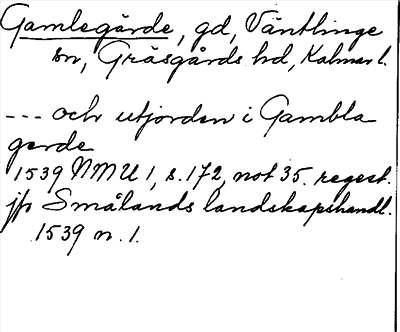 Gamlegärde, gd, Ventlinge
sn, Gräsgårds hd, Kalmar l.
--- och utjorden i Gambla
gerde
1539 NMU 1, s. 172, not 35. regest.
jfr Smålands landskapshandl.
1539 n. 1.